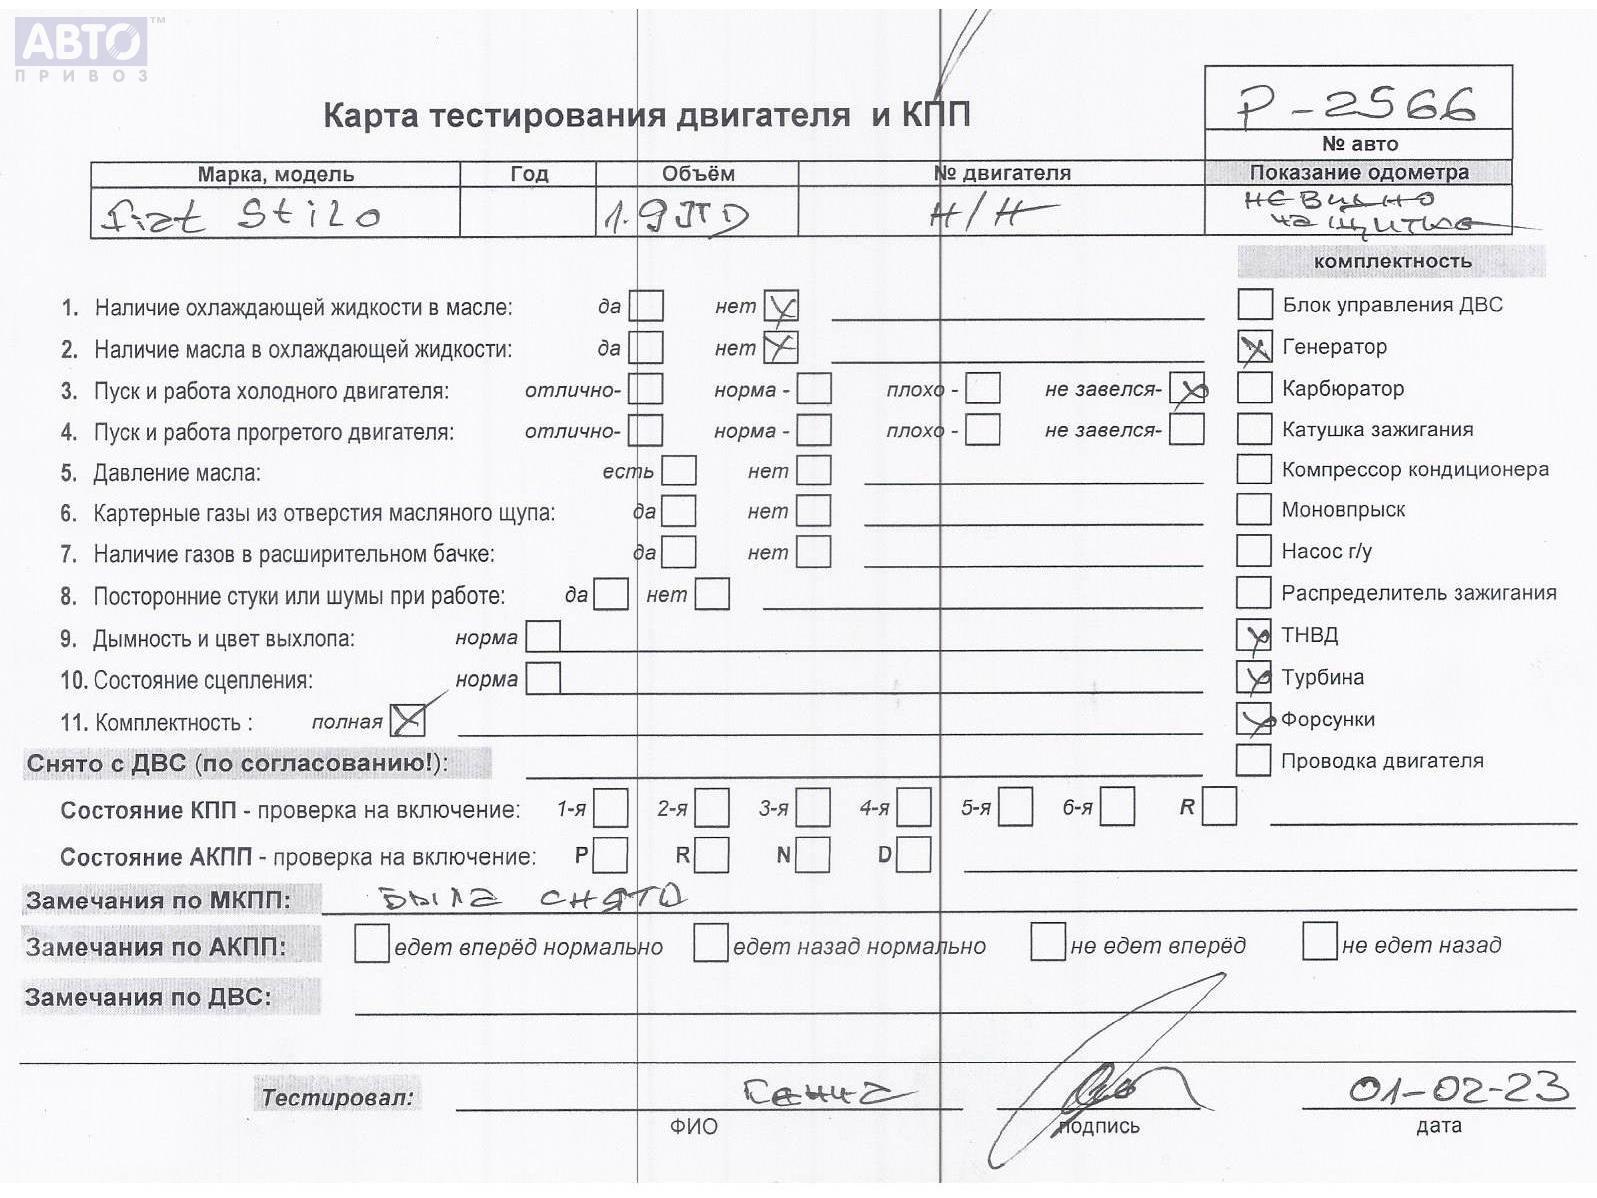 АВТО™
ПРИВОЗ
Карта тестирования двигателя и КПП
P-2566
№ авто
Марка, модель Год Объём № двигателя Показание одометра
fiat Stilo 1.9JTD Н/Н не видно
на щитке
комплектность
1. Наличие охлаждающей жидкости в масле: да нет X Блок управления ДВС
2. Наличие масла в охлаждающей жидкости: да нет X X Генератор
3. Пуск и работа холодного двигателя: отлично- норма - плохо - не завелся- X Карбюратор
4. Пуск и работа прогретого двигателя: отлично- норма - плохо - не завелся- Катушка зажигания
5. Давление масла: есть нет Компрессор кондиционера
6. Картерные газы из отверстия масляного щупа: да нет Моновпрыск
7. Наличие газов в расширительном бачке: да нет Насос г/у
8. Посторонние стуки или шумы при работе: да нет Распределитель зажигания
9. Дымность и цвет выхлопа: норма X ТНВД
10. Состояние сцепления: норма X Турбина
11. Комплектность : полная X X Форсунки
Снято с ДВС (по согласованию!): Проводка двигателя
Состояние КПП - проверка на включение: 1-я 2-я 3-я 4-я 5-я 6-я R
Состояние АКПП - проверка на включение: P R N D
Замечания по МКПП: была снято
Замечания по АКПП: едет вперёд нормально едет назад нормально не едет вперёд не едет назад
Замечания по ДВС:
Тестировал: 01-02-23
ФИО подпись дата